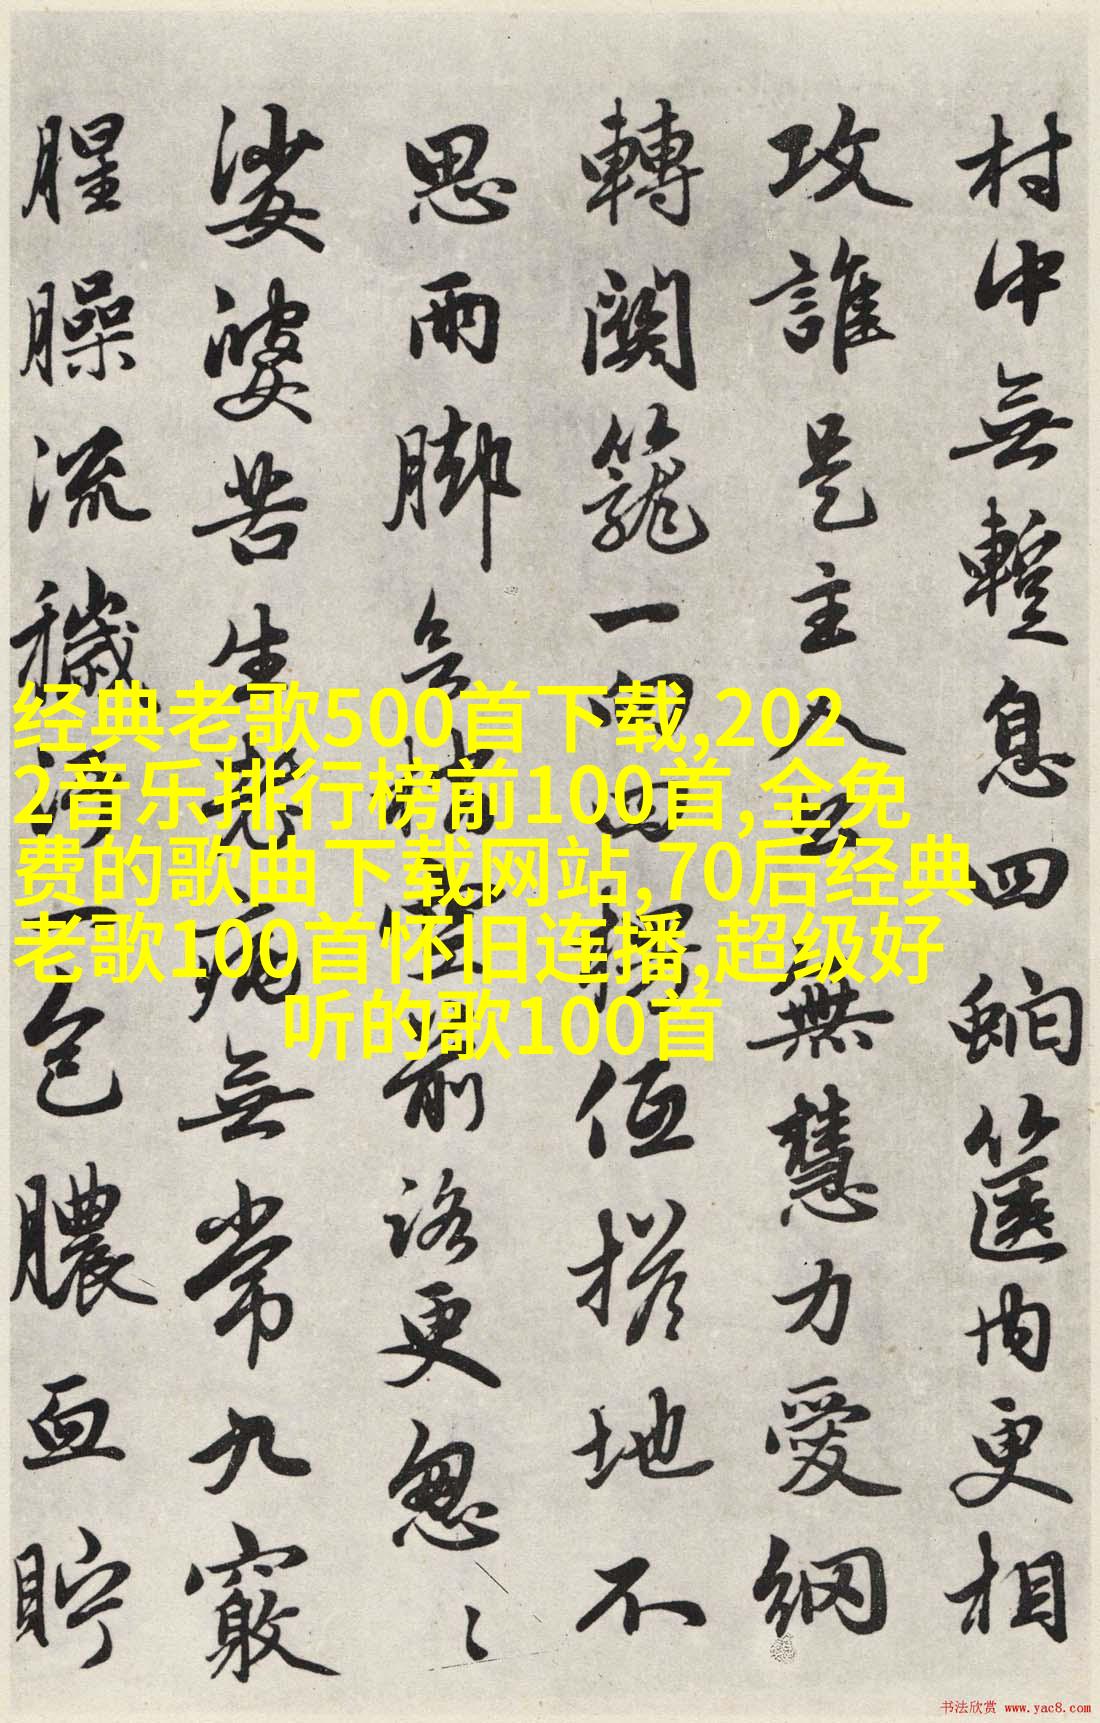 村中無蹔息四虵篋内更相
攻誰是主人無慧力愛網
轉關籠一四楞地不
思兩脚空前路更怱〻
娑婆苦生老病無常九竅
腥臊流穢污一包膿血貯
经典老歌500首下载,202
2音乐排行榜前100首,全免
费的歌曲下载网站,70后经典
老歌100首怀旧连播,超级好
听的歌100首
书法欣赏 www.yac8.com